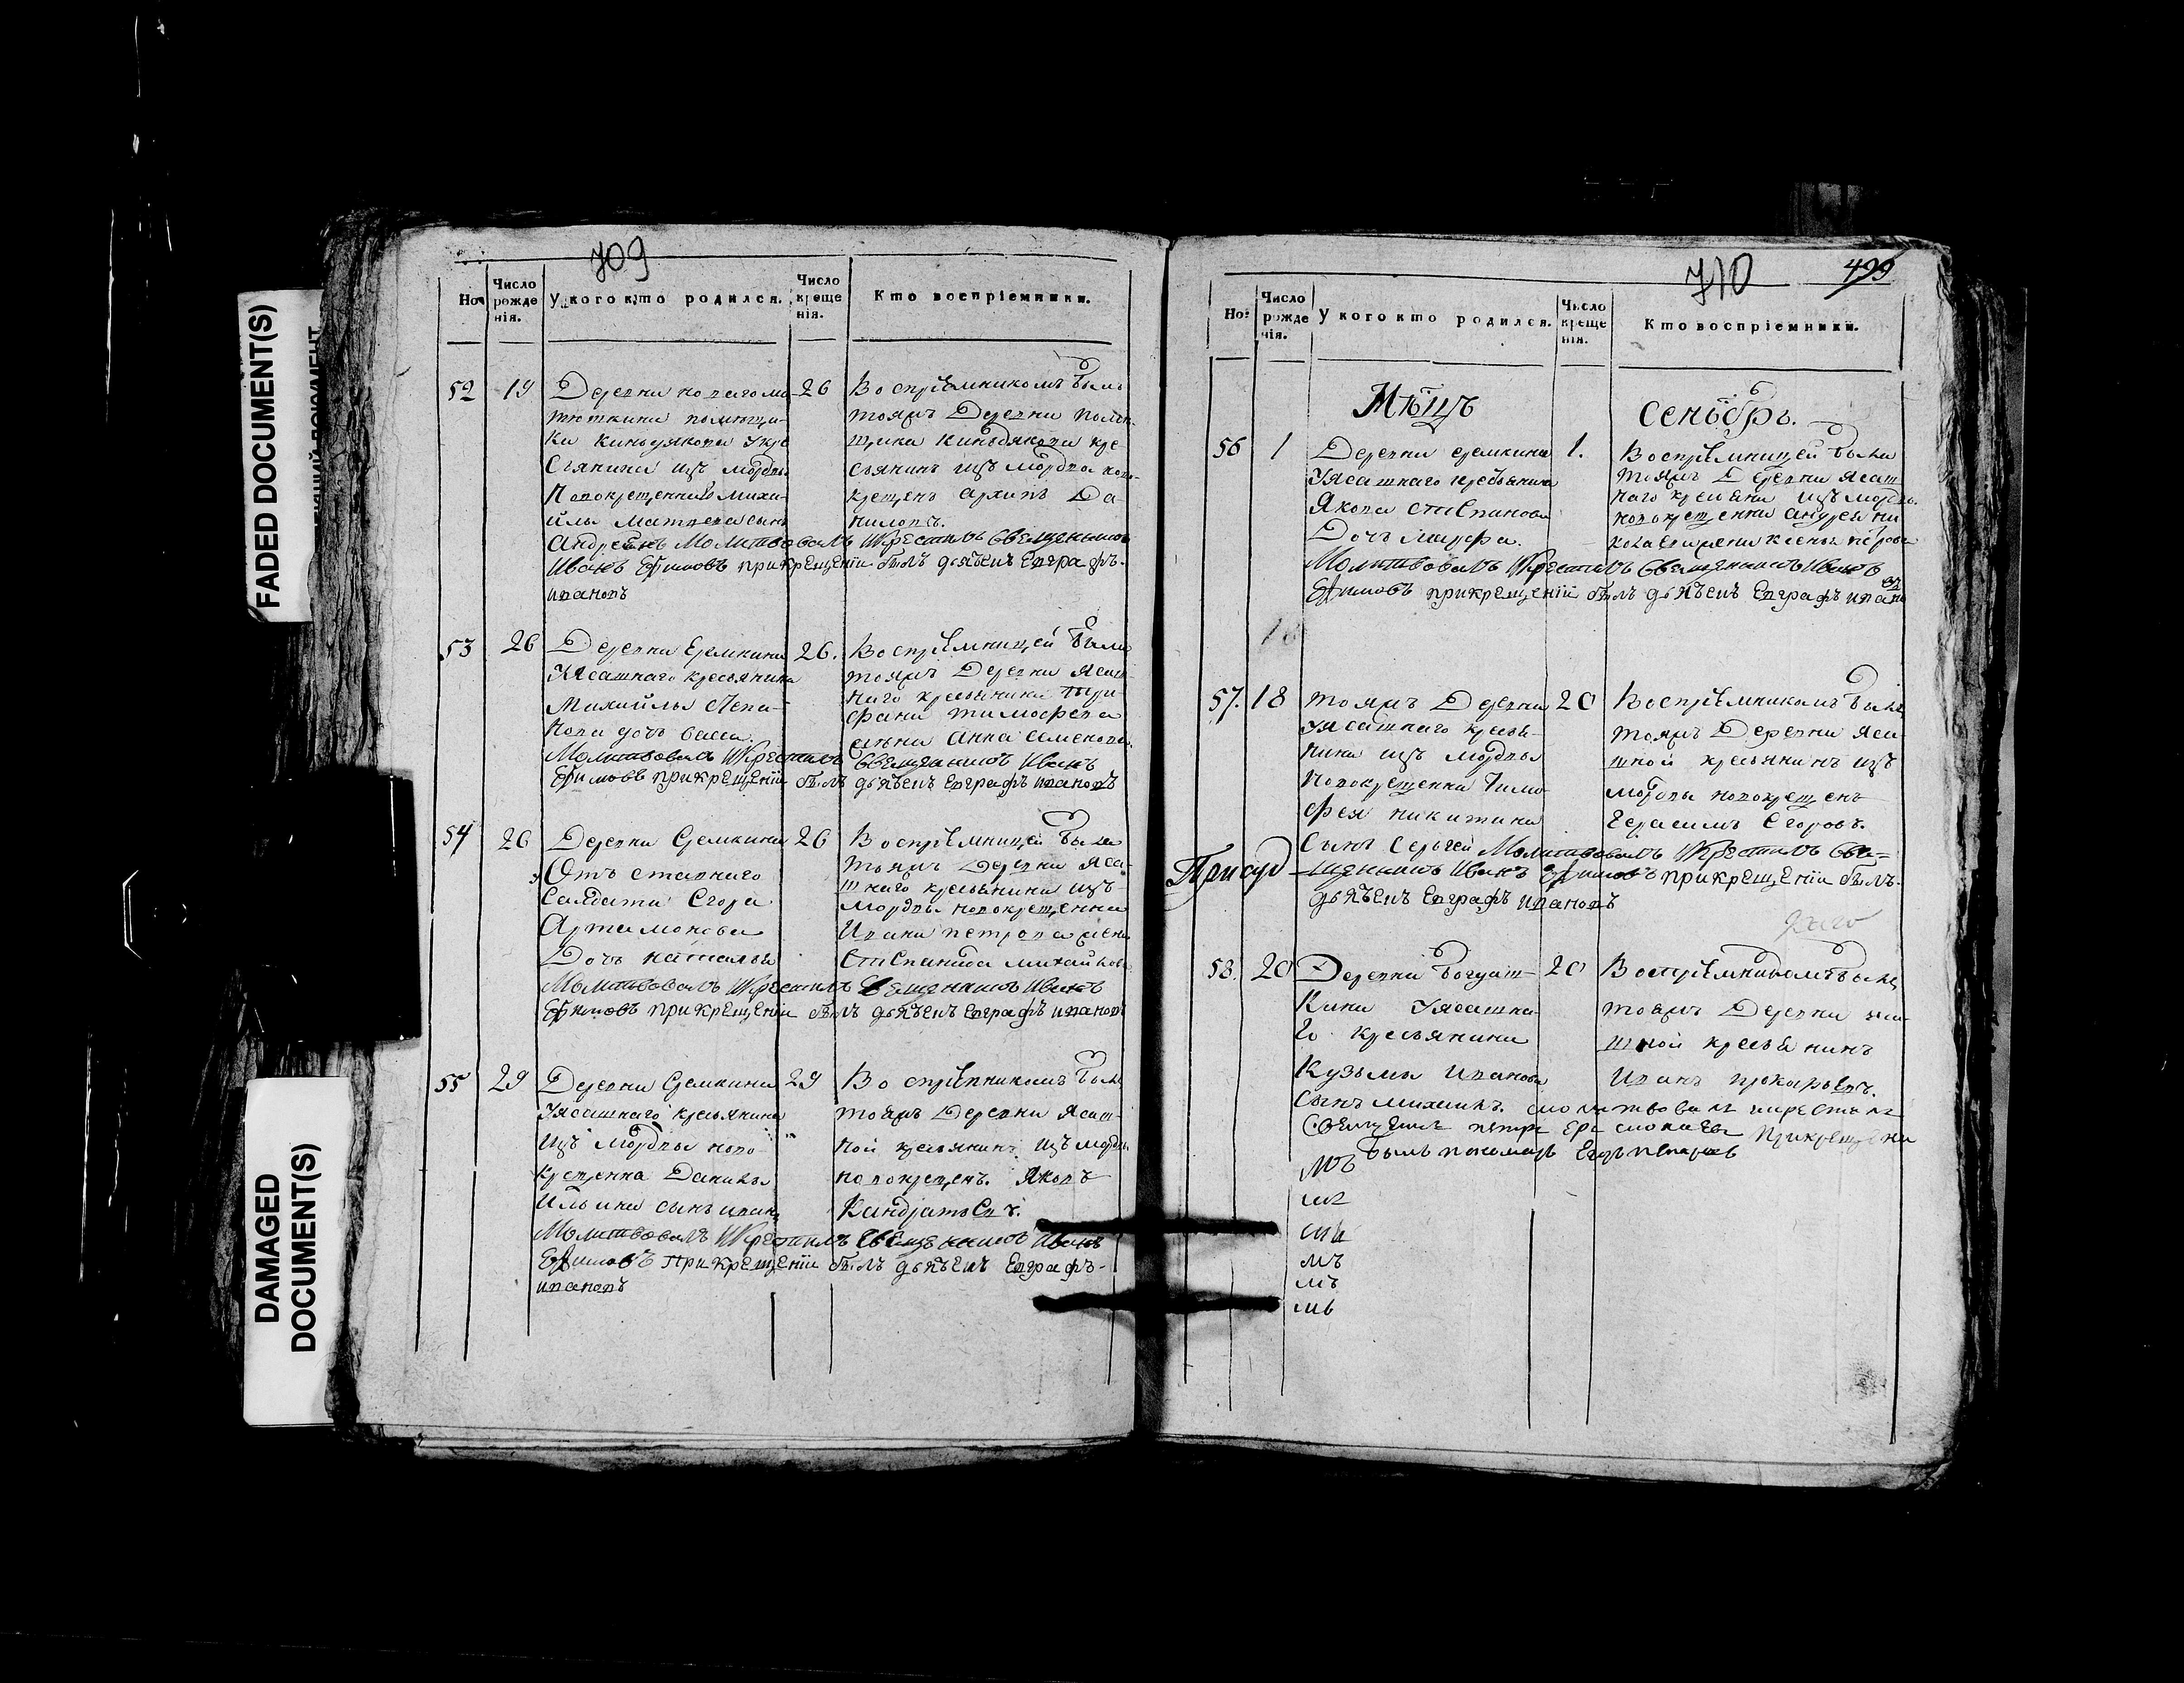 709
Но
Число рожде нія.
У кого кто родился.
Число креще нія.
Кто воспріемники.
52 19 Деревни новаго ма- 26
тюткина помещи-
ка у кре
стьянина изъ мордвы
новокрещеннаго михаи-
йлы матвеева сынъ
андреянъ Молитвовалъ Икрестилъ Священникъ
Иванъ Ефимовъ прикрещеніи былъ дьячекъ Евграфъ
ивановъ
Воспріемникомъ былъ
тояжъ Деревни помещ-
щика кре-
сьянинъ изъ мордвы ново-
крещенъ архипъ Да-
ниловъ.
53 26 Деревни Еремкина 26.
Уясашнаго кресьянина
Михайлы Степа-
нова дочь васса.
Молитвовалъ Икрестилъ Священникъ Иванъ
Ефимовъ прикрещеніи былъ дьячекъ Евграфъ ивановъ
Воспріемницей была
тояжъ Деревни ясаш-
наго кресьянина
тимофеева
анна семенова
54 26 Деревни Еремкина 26
Отъ ставнаго
Салдата Егора
Артамонова
Дочь наталья
Молитвовалъ Икрестилъ Священникъ Иванъ
Ефимовъ прикрещеніи былъ дьячекъ Евграфъ ивановъ
Воспріемницей была
тояжъ Деревни яса-
шнаго кресьянина изъ
мордвы новокрещенна
Ивана петрова жена
Стипанида михайлова
55 29 Деревни Еремкина 29
Уясашнаго кресьянина
изъ мордвы ново-
крещенна Данилы
Ильина сынъ иванъ
Молитвовалъ Икрестилъ Священникъ Иванъ
Ефимовъ Прикрещеніи былъ дьячекъ Евграфъ
ивановъ
Воспріемникомъ былъ
тояжъ Деревни ясаш-
ной кресьянинъ изъ мордвы
новокрещенъ Яковъ
Кандратьевъ.
710
499
Но
Число рожде нія.
У кого кто родился.
Число креще нія.
Кто воспріемники.
Мѣцъ Сентябръ.
56 1 Деревни еремкина 1.
Уясашнаго кресьянина
Якова стипанова
Дочь марфа.
Молитвовалъ Икрестилъ Священникъ Иванъ
Ефимовъ прикрещеніи былъ дьячекъ Евграфъ ивановъ
Воспріемницей была
тояжъ Деревни ясаш-
наго кресьяни изъ мордвы
новокрещенна андрея ни
18
57. 18 тояжъ Деревни 20
уясашнаго кресья-
нина изъ мордвы
новокрещенна тимо-
фея никитина
Сынъ Сергей Молитвовалъ Икрестилъ Свя-
щенникъ Иванъ Ефимовъ прикрещеніи былъ
дьячекъ Евграфъ ивановъ
Воспріемникомъ былъ
тояжъ Деревни яса-
шной кресьянинъ изъ
мордвы новокрещенъ
Герасимъ Егоровъ.
58. 20 Деревни богдаш- 20
кина Уясашна-
го кресьянина
Кузьмы иванова
Сынъ михаилъ. молитвовалъ икрестилъ
петръ прикрещени
былъ пономарь Егоръ
Воспріемникомъ былъ
тояжъ Деревни яса-
шной кресьянинъ
Иванъ прокофьевъ.
мъ
мъ
мъ
FADED DOCUMENT(S)
DAMAGED
DOCUMENT(S)